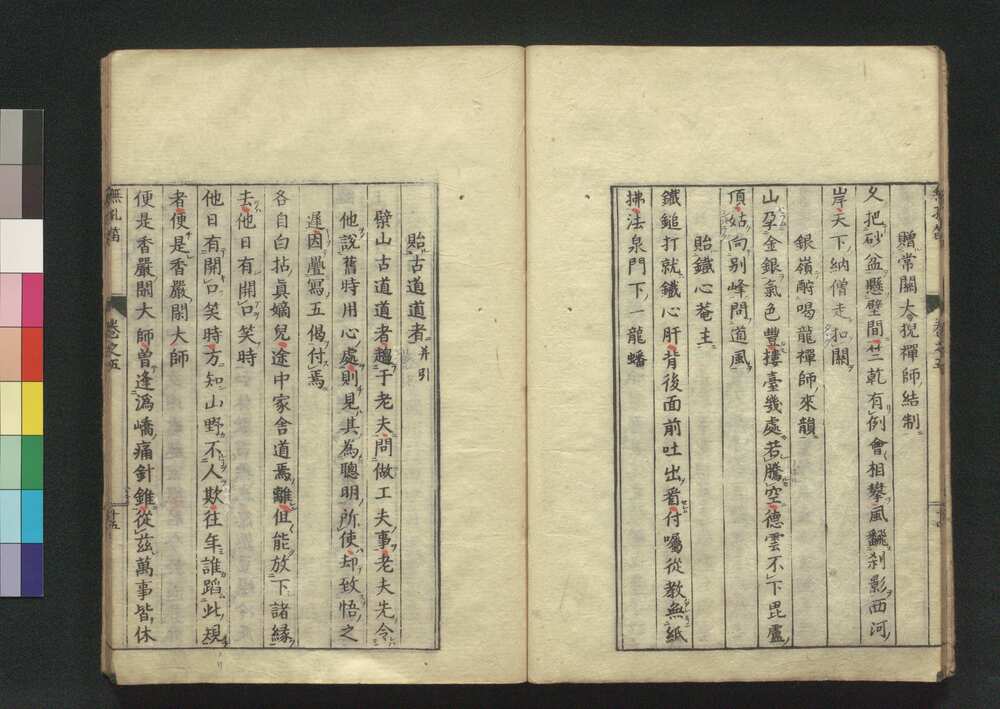 贈常關大猊禪師結制
久把砂盆懸壁間竺乾有例會相攀風飜刹影西河
岸天下納僧走扣關
銀嶺酧喝龍禪師來韻
山孕金銀氣色豐摟臺幾處若騰空德雲不下毘盧
頂姑向別峰問道風
貽鐵心菴主
鐵鎚打就鐵心肝背後面前吐出看付囑從教無紙
拂法泉門下一龍蟠
貽古道道者并引
檗山古道道者趨于老夫問做工夫事老夫先令
他說舊時用心處則見其為聰明所使却致悟之
遲因疊寫五偈付焉
各自白拈眞嫡兒途中家舍道焉離但能放下諸緣
去他日有開口笑時
他日有開口笑時方知山野不人欺往年誰蹈此規
者便是香嚴閣大師
便是香嚴閣大師曾逢潙嶠痛針錐從茲萬事皆休
無孔笛
卷之五